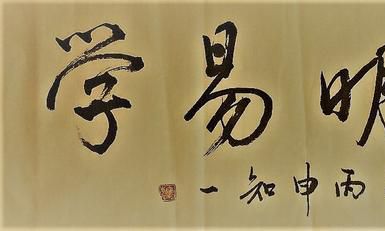 易学
丙申知一